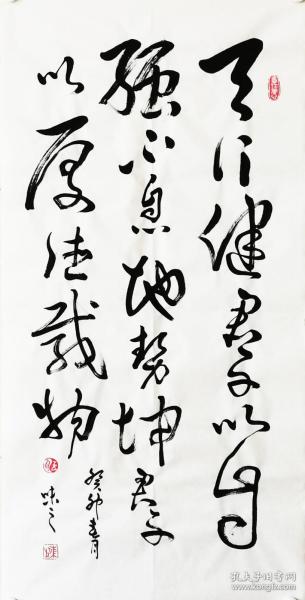 天行健君子以自
强不息地势坤君子
以厚德载物
癸卯春月
味之
孔夫子旧书网